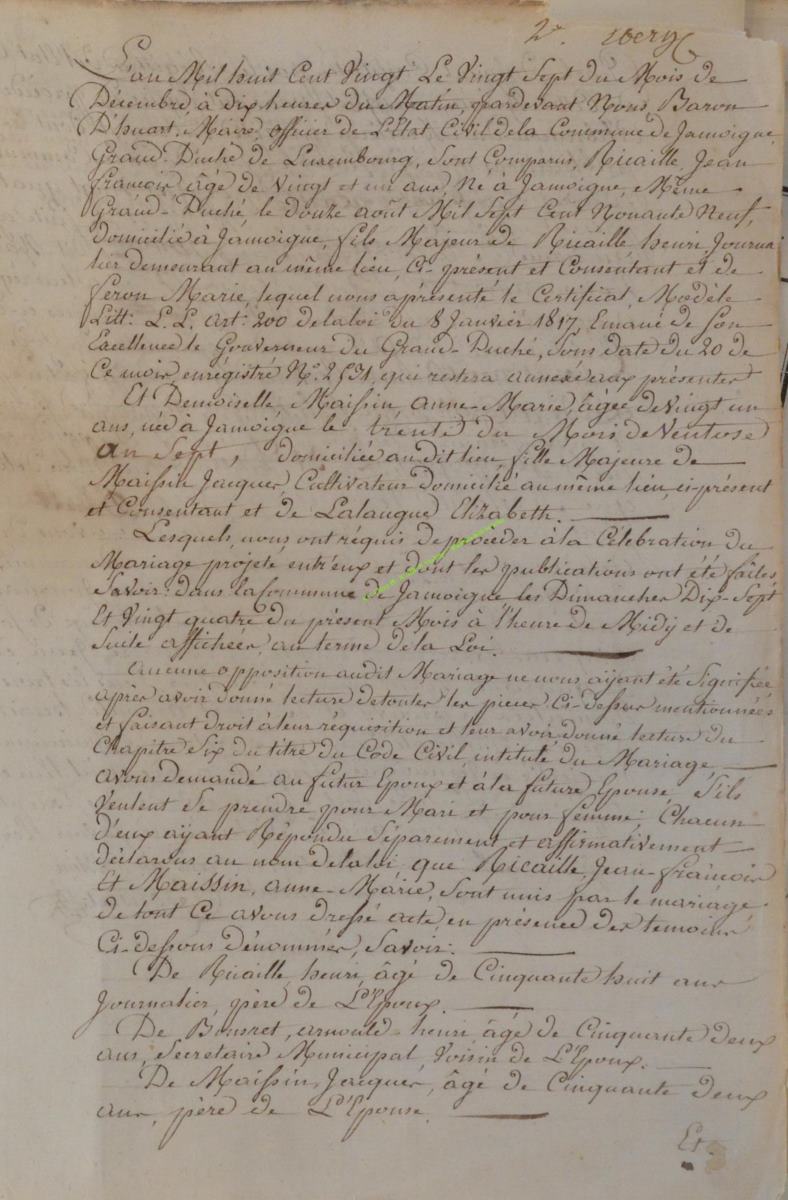 2e. 
L'an Mil huit Cent Vingt Le Vingt Sept du Mois de
Décembre, à dix heures du Matin, pardevant Nous Baron
D'huart, Maire, officier de L'Etat Civil de la Commune de Jamoigne,
Grand-Duché de Luxembourg, Sont Comparus, Ricaille, Jean
francois âgé de Vingt et un ans, Né à Jamoigne, Même
Grand-Duché, le douze août Mil Sept Cent Nonante Neuf,
domicilié à Jamoigne, fils Majeur de Ricaille henri, Journa
lier demeurant au même lieu, Ci-présent et Consentant et de
feron Marie, lequel nous a présenté le Certificat, Modèle
Litt: L.L. art: 200 de la loi du 8 Janvier 1817, Emané de Son
Excellence le Gouverneur du Grand-Duché, Sous date du 20 de
Ce mois, enregistré No. 2531, qui restera annexé aux présentes
Et Demoiselle, Maissin, anne-Marie, âgée de Vingt un
ans, née à Jamoigne le trente du Mois de Ventose
an Sept, domiciliée audit lieu, fille Majeure de
Maissin Jacques, Cultivateur domicilié au même lieu, ci-présent
et Consentant et de Lalangue Elizabeth.
Lesquels, nous ont réquis de procéder à la Célébration du
Mariage projeté entr'eux et dont les publications ont été faites,
Savoir: dans la Commune de Jamoigne les Dimanches Dix-Sept
Et Vingt quatre du présent Mois à l'heure de Midy et de
Suite affichées, au terme de la Loi.
aucune opposition audit Mariage ne nous ayant été Signifiée
après avoir donné lecture de toutes les pieces Ci-dessus mentionnées
et faisant droit à leur réquisition et leur avoir donné lecture du
Chapitre Six du titre du Code Civil, intitulé du Mariage
avons demandé au futur Epoux et à la future Epouse S'ils
Veulent Se prendre pour Mari et pour femme: Chacun
D'eux ayant Répondu Séparement et affirmativement
déclarons au nom de la loi que Ricaille, Jean-francois
Et Maissin, anne-Marie, Sont unis par le mariage.
de tout Ce avons dressé acte en présence des temoins
Ci-dessous dénommés, Savoir:
De Ricaille, henri, âgé de Cinquante huit ans
Journalier, père de L'Epoux.
De arnould-henri âgé de Cinquante deux
ans, Secretaire Municipal Voisin de L'Epoux.
De Maissin, Jacques, âgé de Cinquante deux
ans, père de L'Epouse.
Et